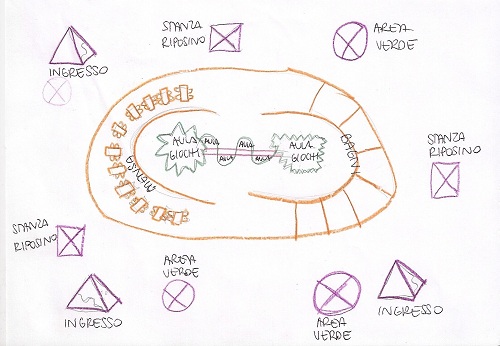 STANZA
RIPOSINO
AREA
VERDE
INGRESSO
AULA
GIOCHI
AULA
AULA
AULA
AULA
AULA
GIOCHI
BAGNI
MENSA
STANZA
RIPOSINO
STANZA
RIPOSINO
AREA
VERDE
INGRESSO
AREA
VERDE
INGRESSO